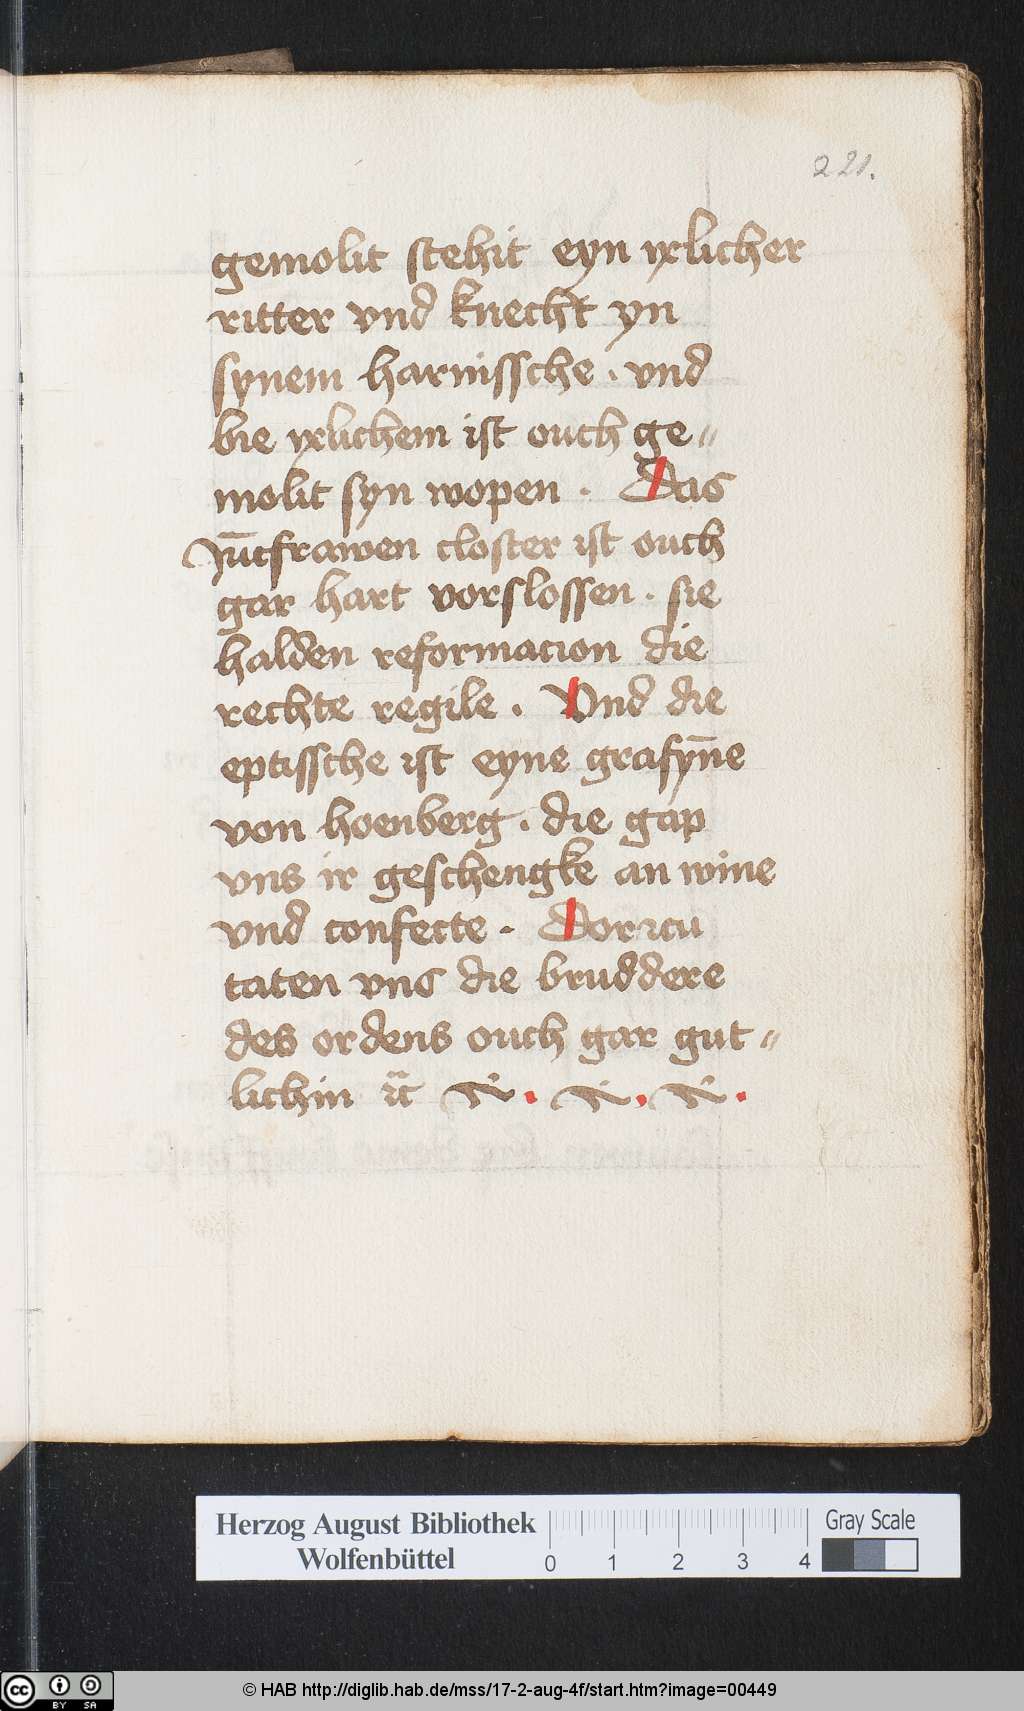 221.
gemolit stehit eyn yxlicher
ritter vnd knecht yn
synem harnissche . vnd
bie yxlichem ist ouch ge〃
molit syn wopen . Das
Jūcfrawen closter ist ouch
gar hart vorslossen . sie
halden reformacion die
rechte regile . Vnd die
eptissche ist eyne grafyn̄e
von hoenberg . die gap
vns ir geschengke an wine
vnd confecte . Dorzcu
taten vns die bruddere
des ordens ouch gar gut〃
lichin
Herzog August Bibliothek
Wolfenbüttel
0 1 2 3 4
Gray Scale
cc BY SA
© HAB http://diglib.hab.de/mss/17-2-aug-4f/start.htm?image=00449